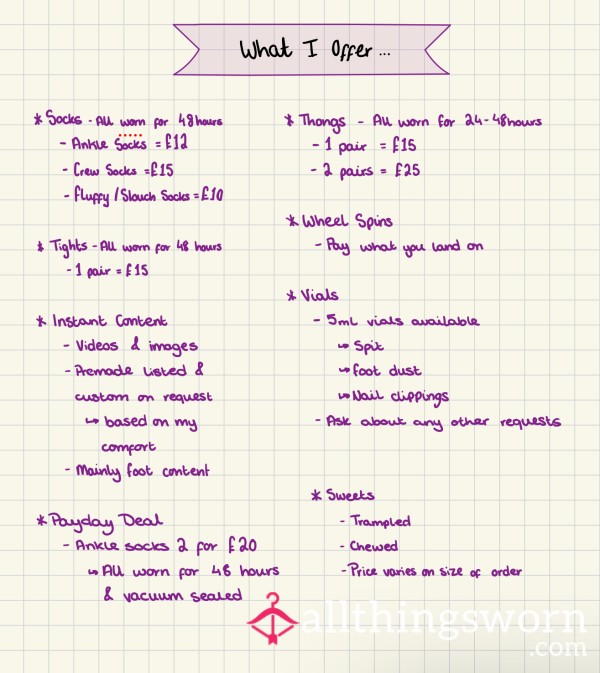 What I Offer ...
* Socks - All worn for 48hours
- Ankle Socks = £12
- Crew Socks = £15
- Fluffy / Slouch Socks = £10
* Tights - All worn for 48 hours
- 1 pair = £15
* Instant Content
- Videos & images
- Premade listed &
custom on request
↳ based on my
comfort
- Mainly foot content
* Payday Deal
- Ankle socks 2 for £20
↳ All worn for 48 hours
& vacuum sealed
* Thongs - All worn for 24-48hours
- 1 pair = £15
- 2 pairs = £25
* Wheel Spins
- Pay what you land on
* Vials
- 5mL vials available
↳ Spit
↳ Foot dust
↳ Nail clippings
- Ask about any other requests
* Sweets
- Trampled
- Chewed
- Price varies on size of order
allthingsworn
.com